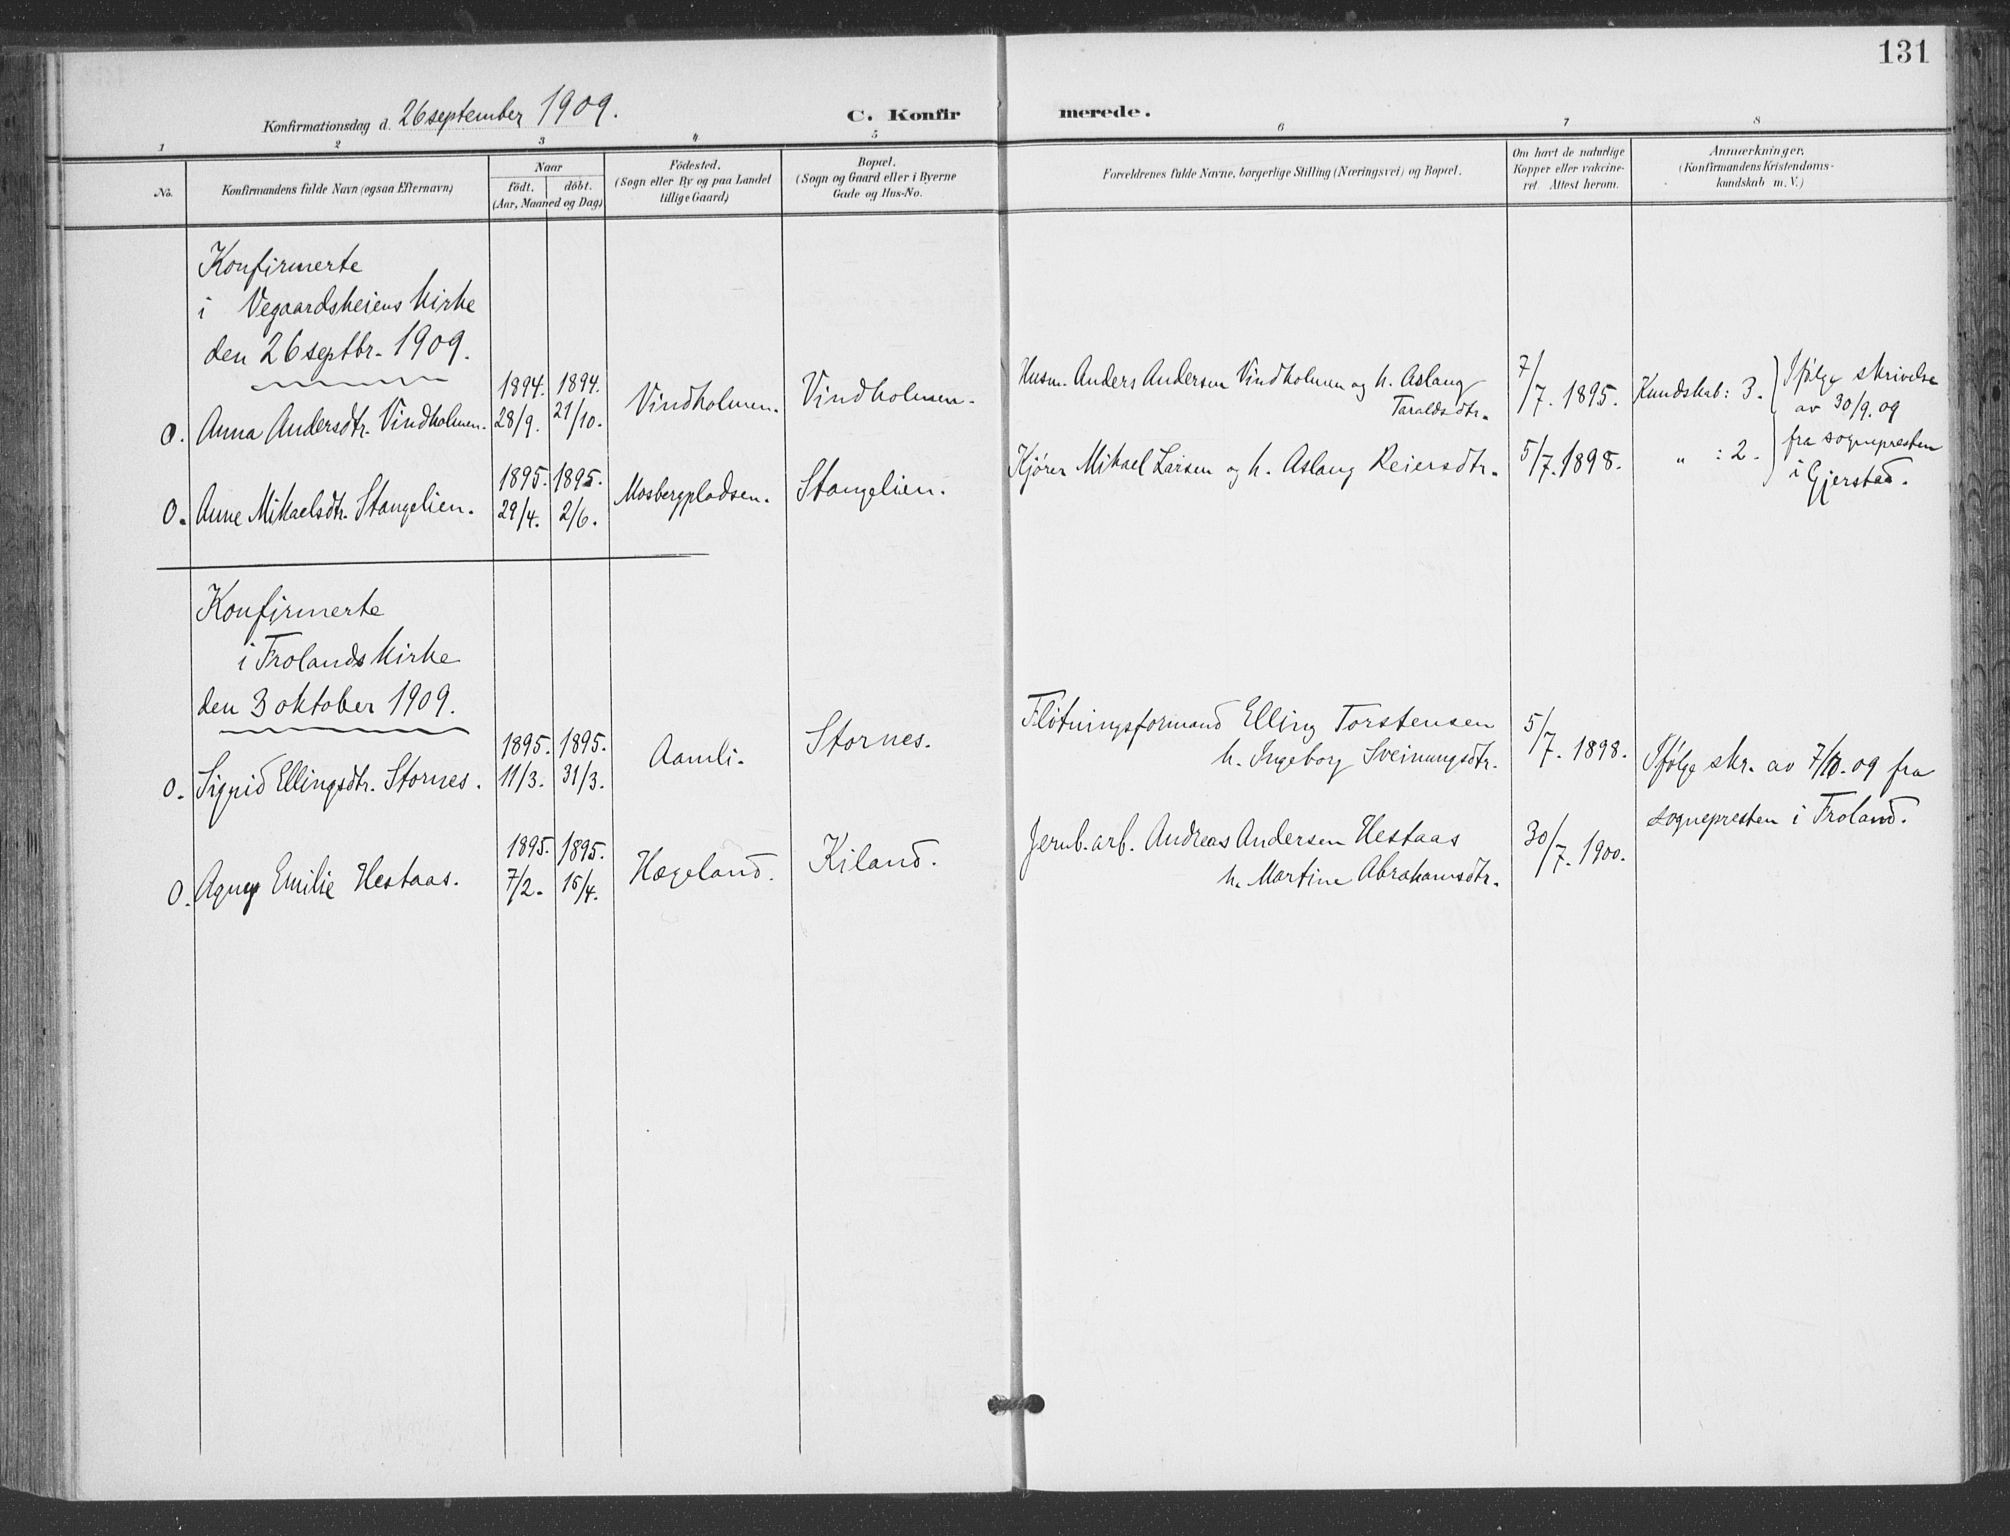 131
Konfirmationsdag d. 26 september 1909.
C. Konfir merede.
1 2 3 4 5 6 7 8
No.
Konfirmandens fulde Navn (ogsaa Efternavn)
Naar
födt. döbt.
(Aar, Maaned og Dag)
Födested.
(Sogn eller By og paa Landet
tillige Gaard)
Bopæl.
(Sogn og Gaard eller i Byerne
Gade og Hus-No.
Forældrenes fulde Navne, borgerlige Stilling (Næringsvei) og Bopæl.
Om havt de naturlige
Kopper eller vakcine-
ret. Attest herom.
Anmærkninger.
(Konfirmandens Kristendoms-
kundskab m. V.)
Konfirmerte
i Vegaardsheiens kirke
den 26 septbr. 1909.
0. Anna Andersdtr. Vindholmen. 1894. 28/9. 1894. 21/10. Vindholmen. Vindholmen. Husm. Anders Andersen Vindholmen og h. Aslaug
Taraldsdtr. 7/7. 1895. Kundskab: 3.
0. Anne Mikaelsdtr. Stangelien. 1895. 29/4. 1895. 2/6. Mosbergpladsen. Stangelien. Kjører Mikael Larsen og h. Aslaug Reiersdtr. 5/7. 1898. " : 2.
Ifølge skrivelse
av 30/9. 09
fra sognepresten
i Gjerstad.
Konfirmerte
i Frolands kirke
den 3 oktober 1909.
0. Sigrid Ellingsdtr. Stornes. 1895. 11/3. 1895. 31/3. Aamli. Stornes. Fløtningsformand Elling Torstensen
h. Ingeborg Sveinungsdtr. 5/7. 1898.
Ifølge skr. av 7/10. 09 fra
sognepresten i Froland.
0. Agnes Emilie Hestaas. 1895. 7/2. 1895. 15/4. Hægeland. Kiland. Jernb. arb. Andreas Andersen Hestaas
h. Martine Abrahamsdtr. 30/7. 1900.